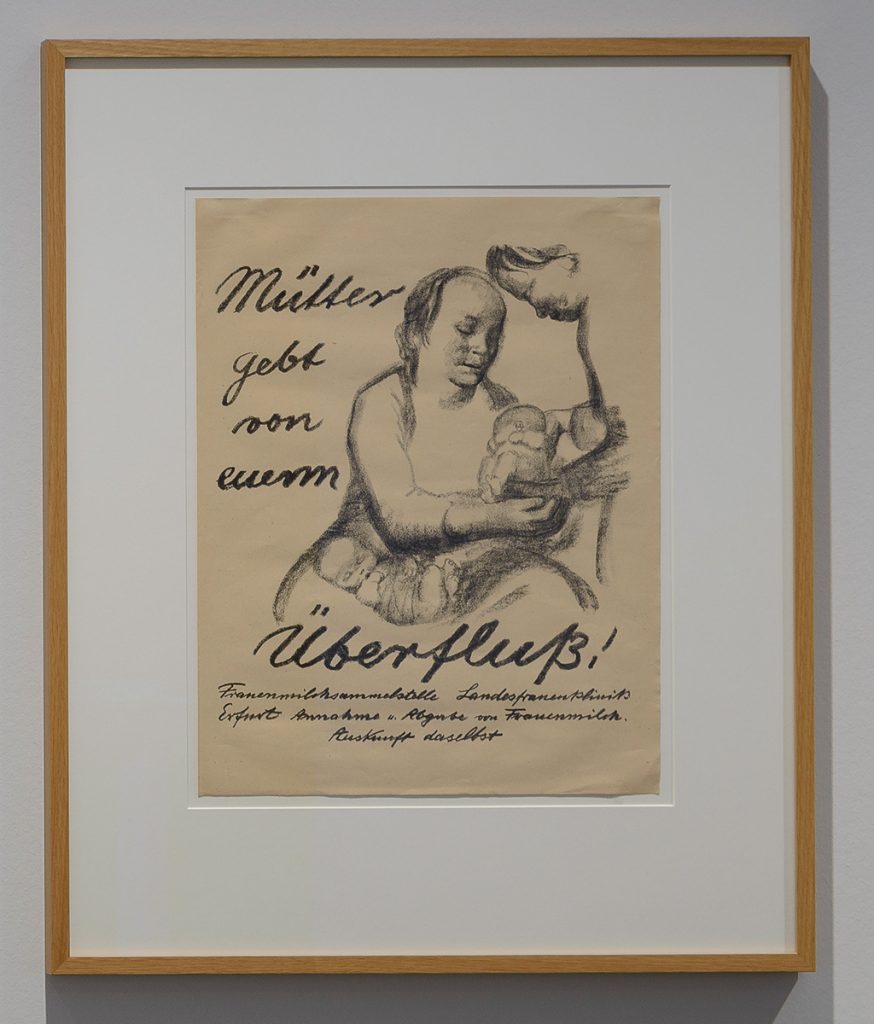 Mütter
gebt
von
euerm
Überfluß!
Frauenmilchsammelstelle Landesfrauenklinik
Erfurt Annahme u. Abgabe von Frauenmilch.
Auskunft daselbst